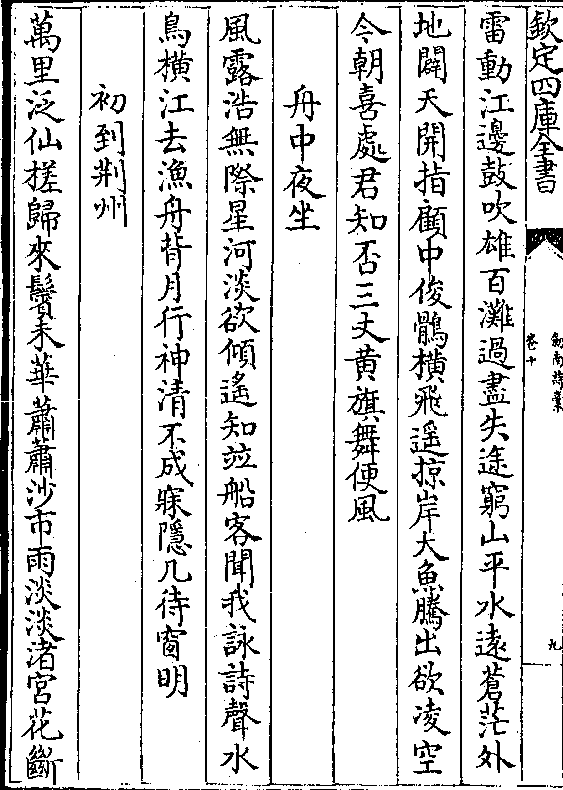 欽定四庫全書
劍南詩藁
卷十
九
雷動江邊鼓吹雄百灘過盡失途窮山平水遠蒼茫外
地闢天開指顧中俊鶻横飛遥掠岸大魚騰出欲凌空
今朝喜處君知否三丈黄旗舞便風
舟中夜坐
風露浩無際星河淡欲傾遙知並船客聞我詠詩聲水
鳥横江去漁舟背月行神清不成寐隱几待窗明
初到荆州
萬里泛仙槎歸來鬢未華蕭蕭沙市雨淡淡渚宮花斷